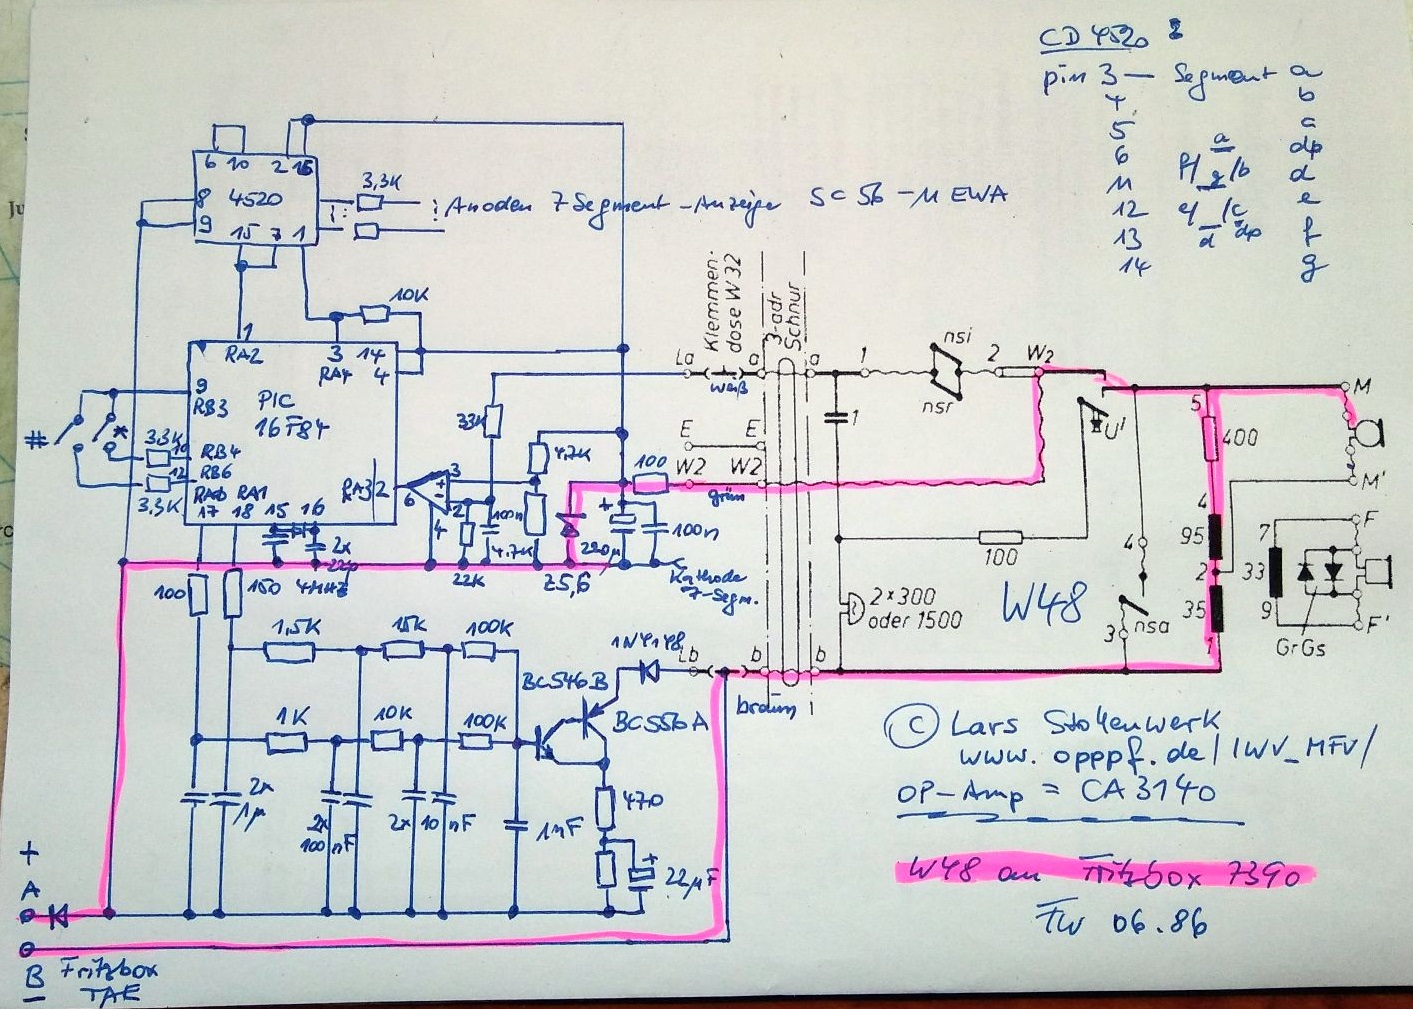 CD 4520
pin 3 — Segment a
4 b
5 a
6 dp
11 d
12 e
13 f
14 g
a
f/ g /b
e/ /c
d dp
6 10 2 16
8 4520
9 15 7 1
3,3K
Anoden 7 Segment-Anzeige SC56-11 EWA
10K
1
RA2 3 14
RA4 4
9
RB3 PIC
16F84
# *
3.3K 10 RB4
12 RB6
3.3K RA0 RA1 RA3 2
17 18 15 16
2x
22p
4MHz
100 150
33K
4,7K
3
6 2
4
100n
4.7K
22K
Z5,6
100
+
220µ 100n
Kathode
7-Segm.
Klemmen-
dose W32
3-adr
Schnur
La a a 1
weiß
E E
W2 W2
grün
nsi
nsr
2 W2
1
U'
5
400
4
95
2
35
1
M
M'
F
F'
7
33
9
GrGs
100
2×300
oder 1500
W48
4
nsa
3
1,5K 15K 100K
1K 10K 100K
1N4148 Lb b b
braun
BC546B
BC556A
2x
1µ
2x
100 nF
2x 10 nF
1nF
470
+
22µF
+
A
B Fritzbox
TAE
© Lars Stollenwerk
www.opppf.de/IWV_MFV/
OP-Amp = CA3140
W48 an Fritzbox 7390
FW 06.86